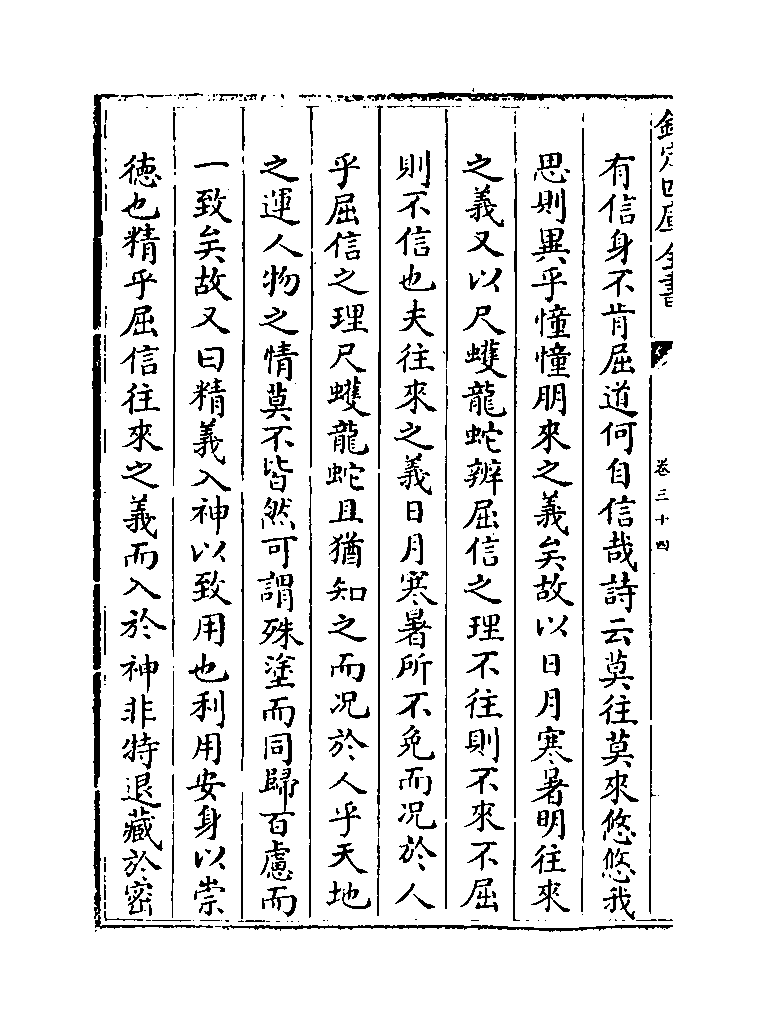 欽定四庫全書
卷三十四
有信身不肯屈道何自信哉詩云莫往莫來悠悠我
思則異乎憧憧朋來之義矣故以日月寒暑明往來
之義又以尺蠖龍蛇辨屈信之理不往則不來不屈
則不信也夫往來之義日月寒暑所不免而况於人
乎屈信之理尺蠖龍蛇且猶知之而况於人乎天地
之運人物之情莫不皆然可謂殊塗而同歸百慮而
一致矣故又曰精義入神以致用也利用安身以崇
德也精乎屈信往來之義而入於神非特退藏於密